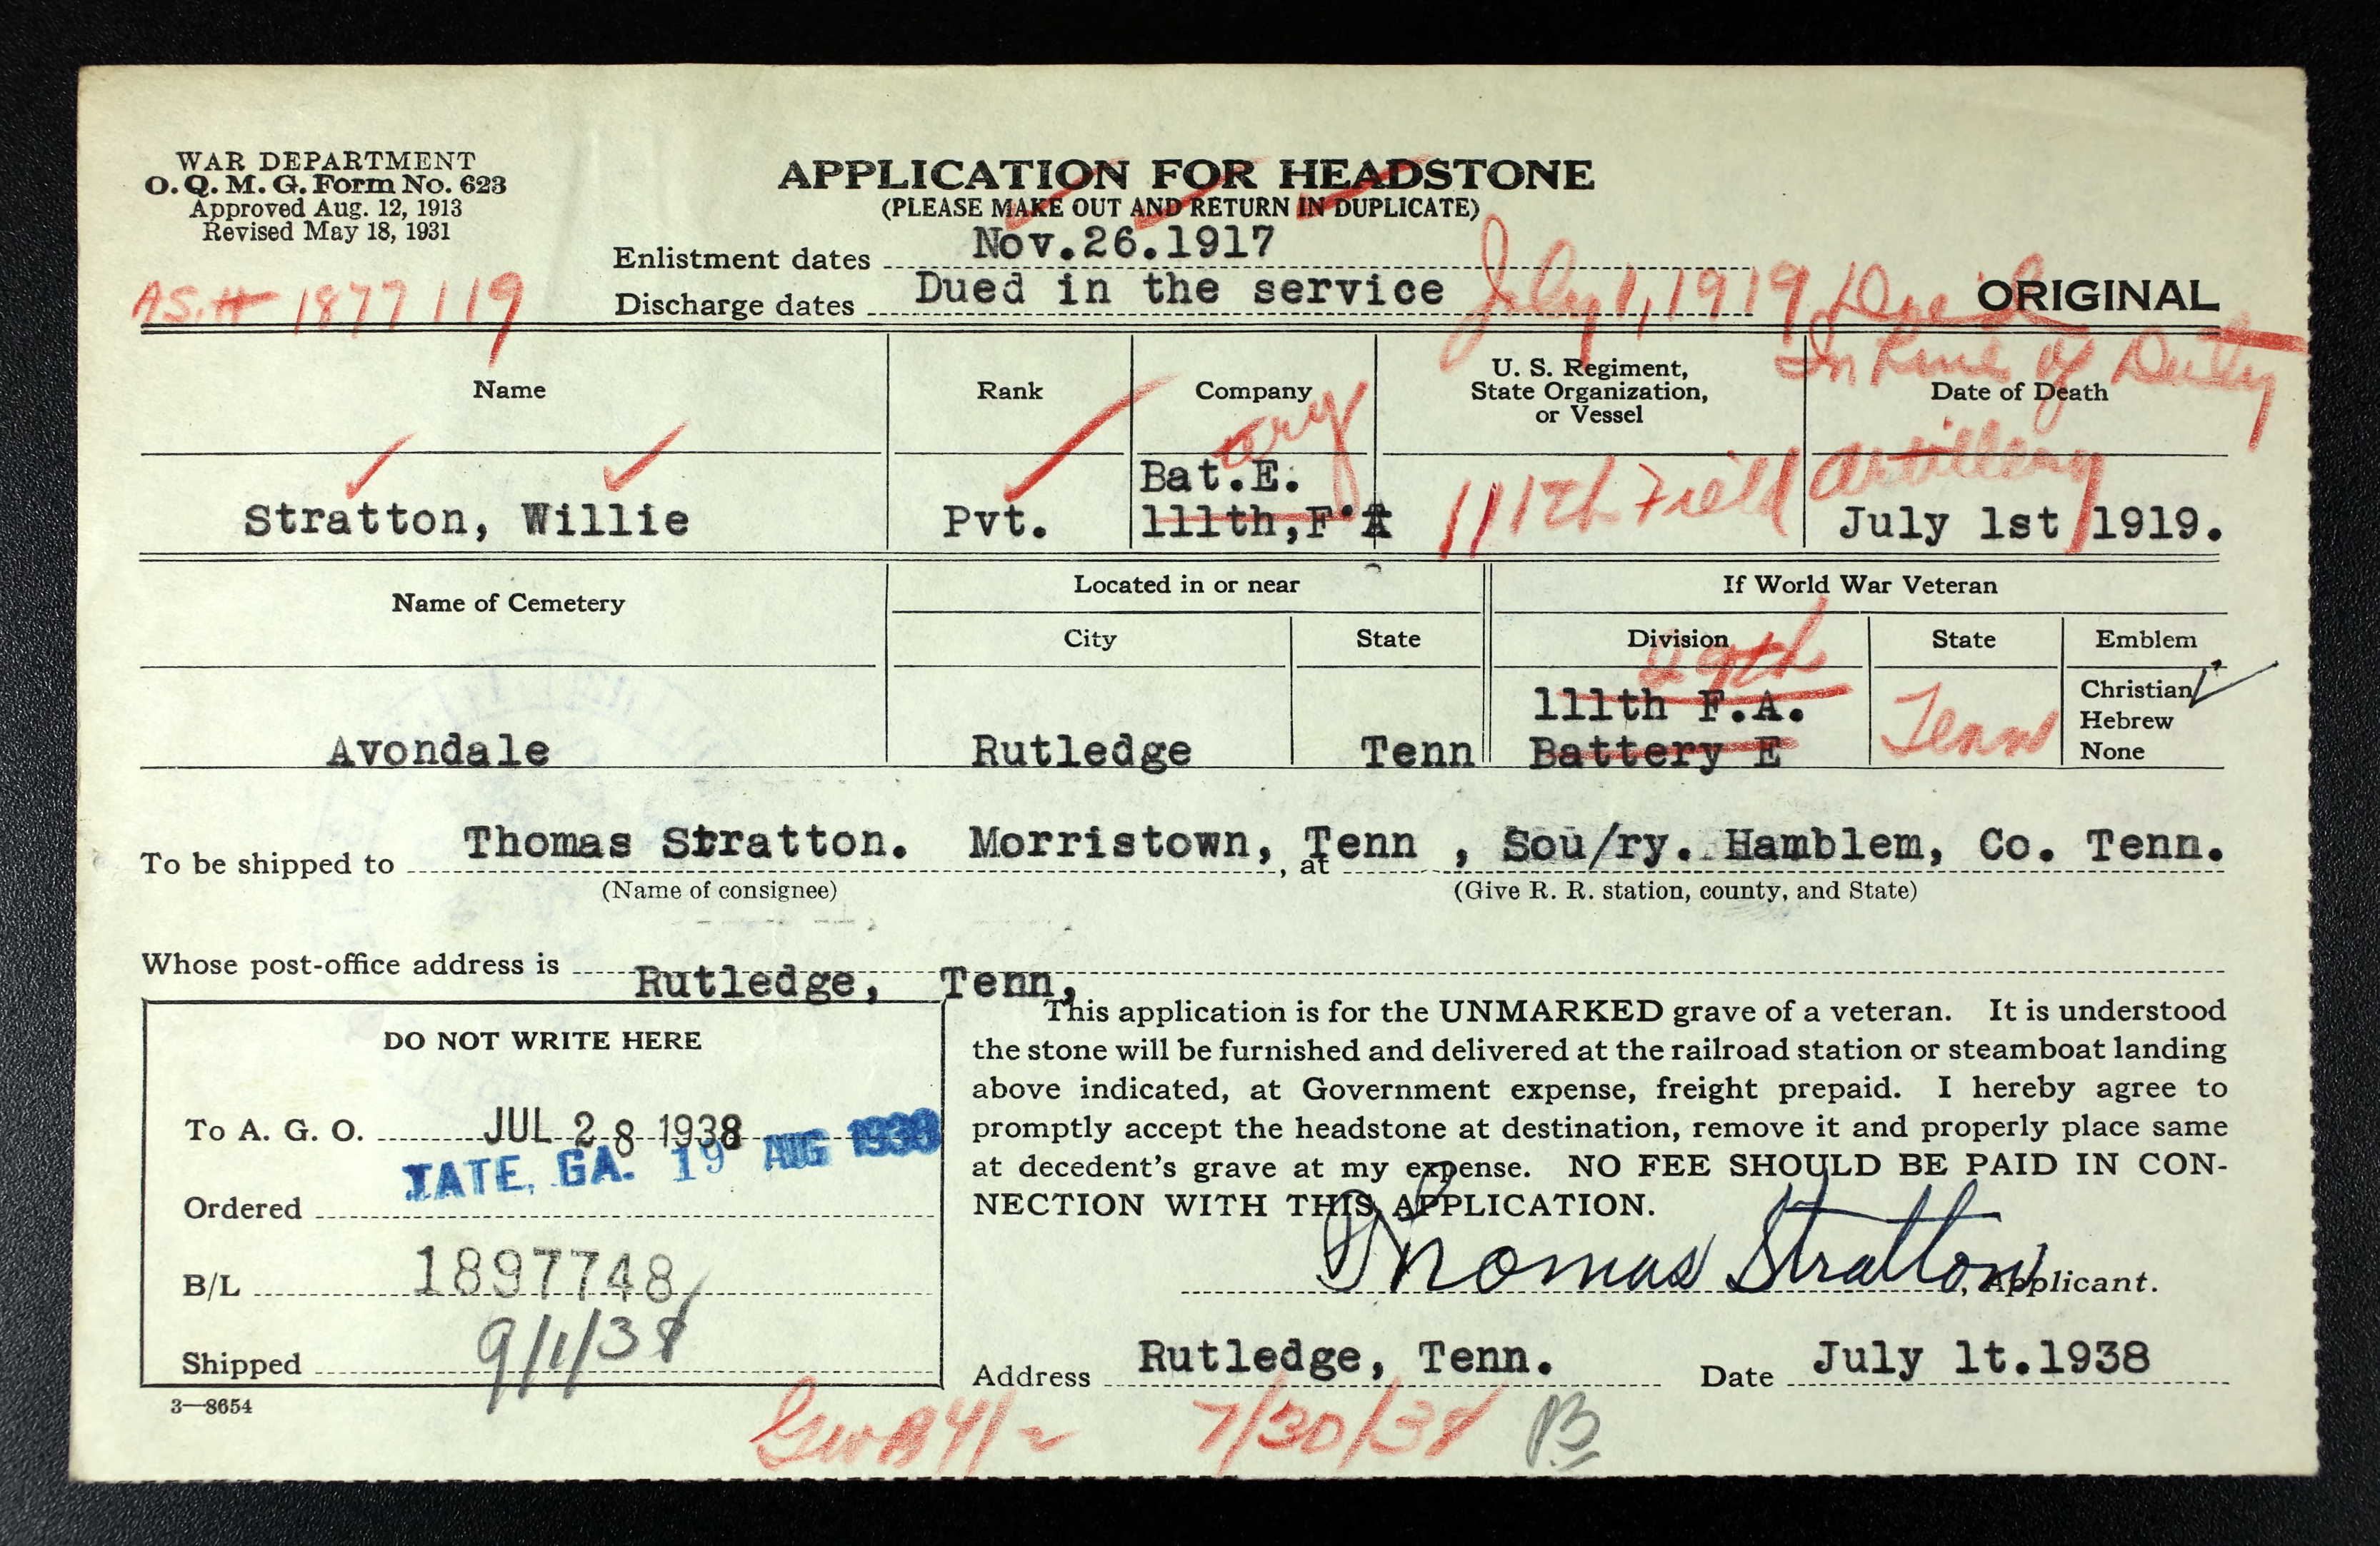 WAR DEPARTMENT
O. Q. M. G. Form No. 623
Approved Aug. 12, 1913
Revised May 18, 1931
APPLICATION FOR HEADSTONE
(PLEASE MAKE OUT AND RETURN IN DUPLICATE)
Enlistment dates Nov.26.1917
Discharge dates Dued in the service July 1, 1919 Died
In Line of Duty
ORIGINAL
A.S.# 1877119
Name
Rank
Company
U. S. Regiment,
State Organization,
or Vessel
Date of Death
Stratton, Willie
Pvt.
Bat.E.
ery
111th,F'A
111th Field Artillery
July 1st 1919.
Name of Cemetery
Located in or near
If World War Veteran
City
State
Division
State
Emblem
Avondale
Rutledge
Tenn
29th
111th F.A.
Battery E
Tenn
Christian
Hebrew
None
To be shipped to Thomas Stratton. Morristown, Tenn , at Sou/ry. Hamblem, Co. Tenn.
(Name of consignee)
(Give R. R. station, county, and State)
Whose post-office address is Rutledge, Tenn,
DO NOT WRITE HERE
To A. G. O. JUL 28 1938
TATE, GA. 19 AUG 1938
Ordered
B/L 1897748
Shipped 9/1/38
3—8654
This application is for the UNMARKED grave of a veteran. It is understood
the stone will be furnished and delivered at the railroad station or steamboat landing
above indicated, at Government expense, freight prepaid. I hereby agree to
promptly accept the headstone at destination, remove it and properly place same
at decedent's grave at my expense. NO FEE SHOULD BE PAID IN CON-
NECTION WITH THIS APPLICATION.
Thomas Stratton, Applicant.
Address Rutledge, Tenn. Date July 1t.1938
7/30/38 B